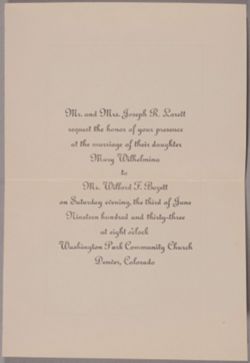 Mr. and Mrs. Joseph R. Lorett
request the honor of your presence
at the marriage of their daughter
Mary Wilhelmina
to
Mr. Willard F. Bozett
on Saturday evening, the third of June
Nineteen hundred and thirty-three
at eight o'clock
Washington Park Community Church
Denver, Colorado